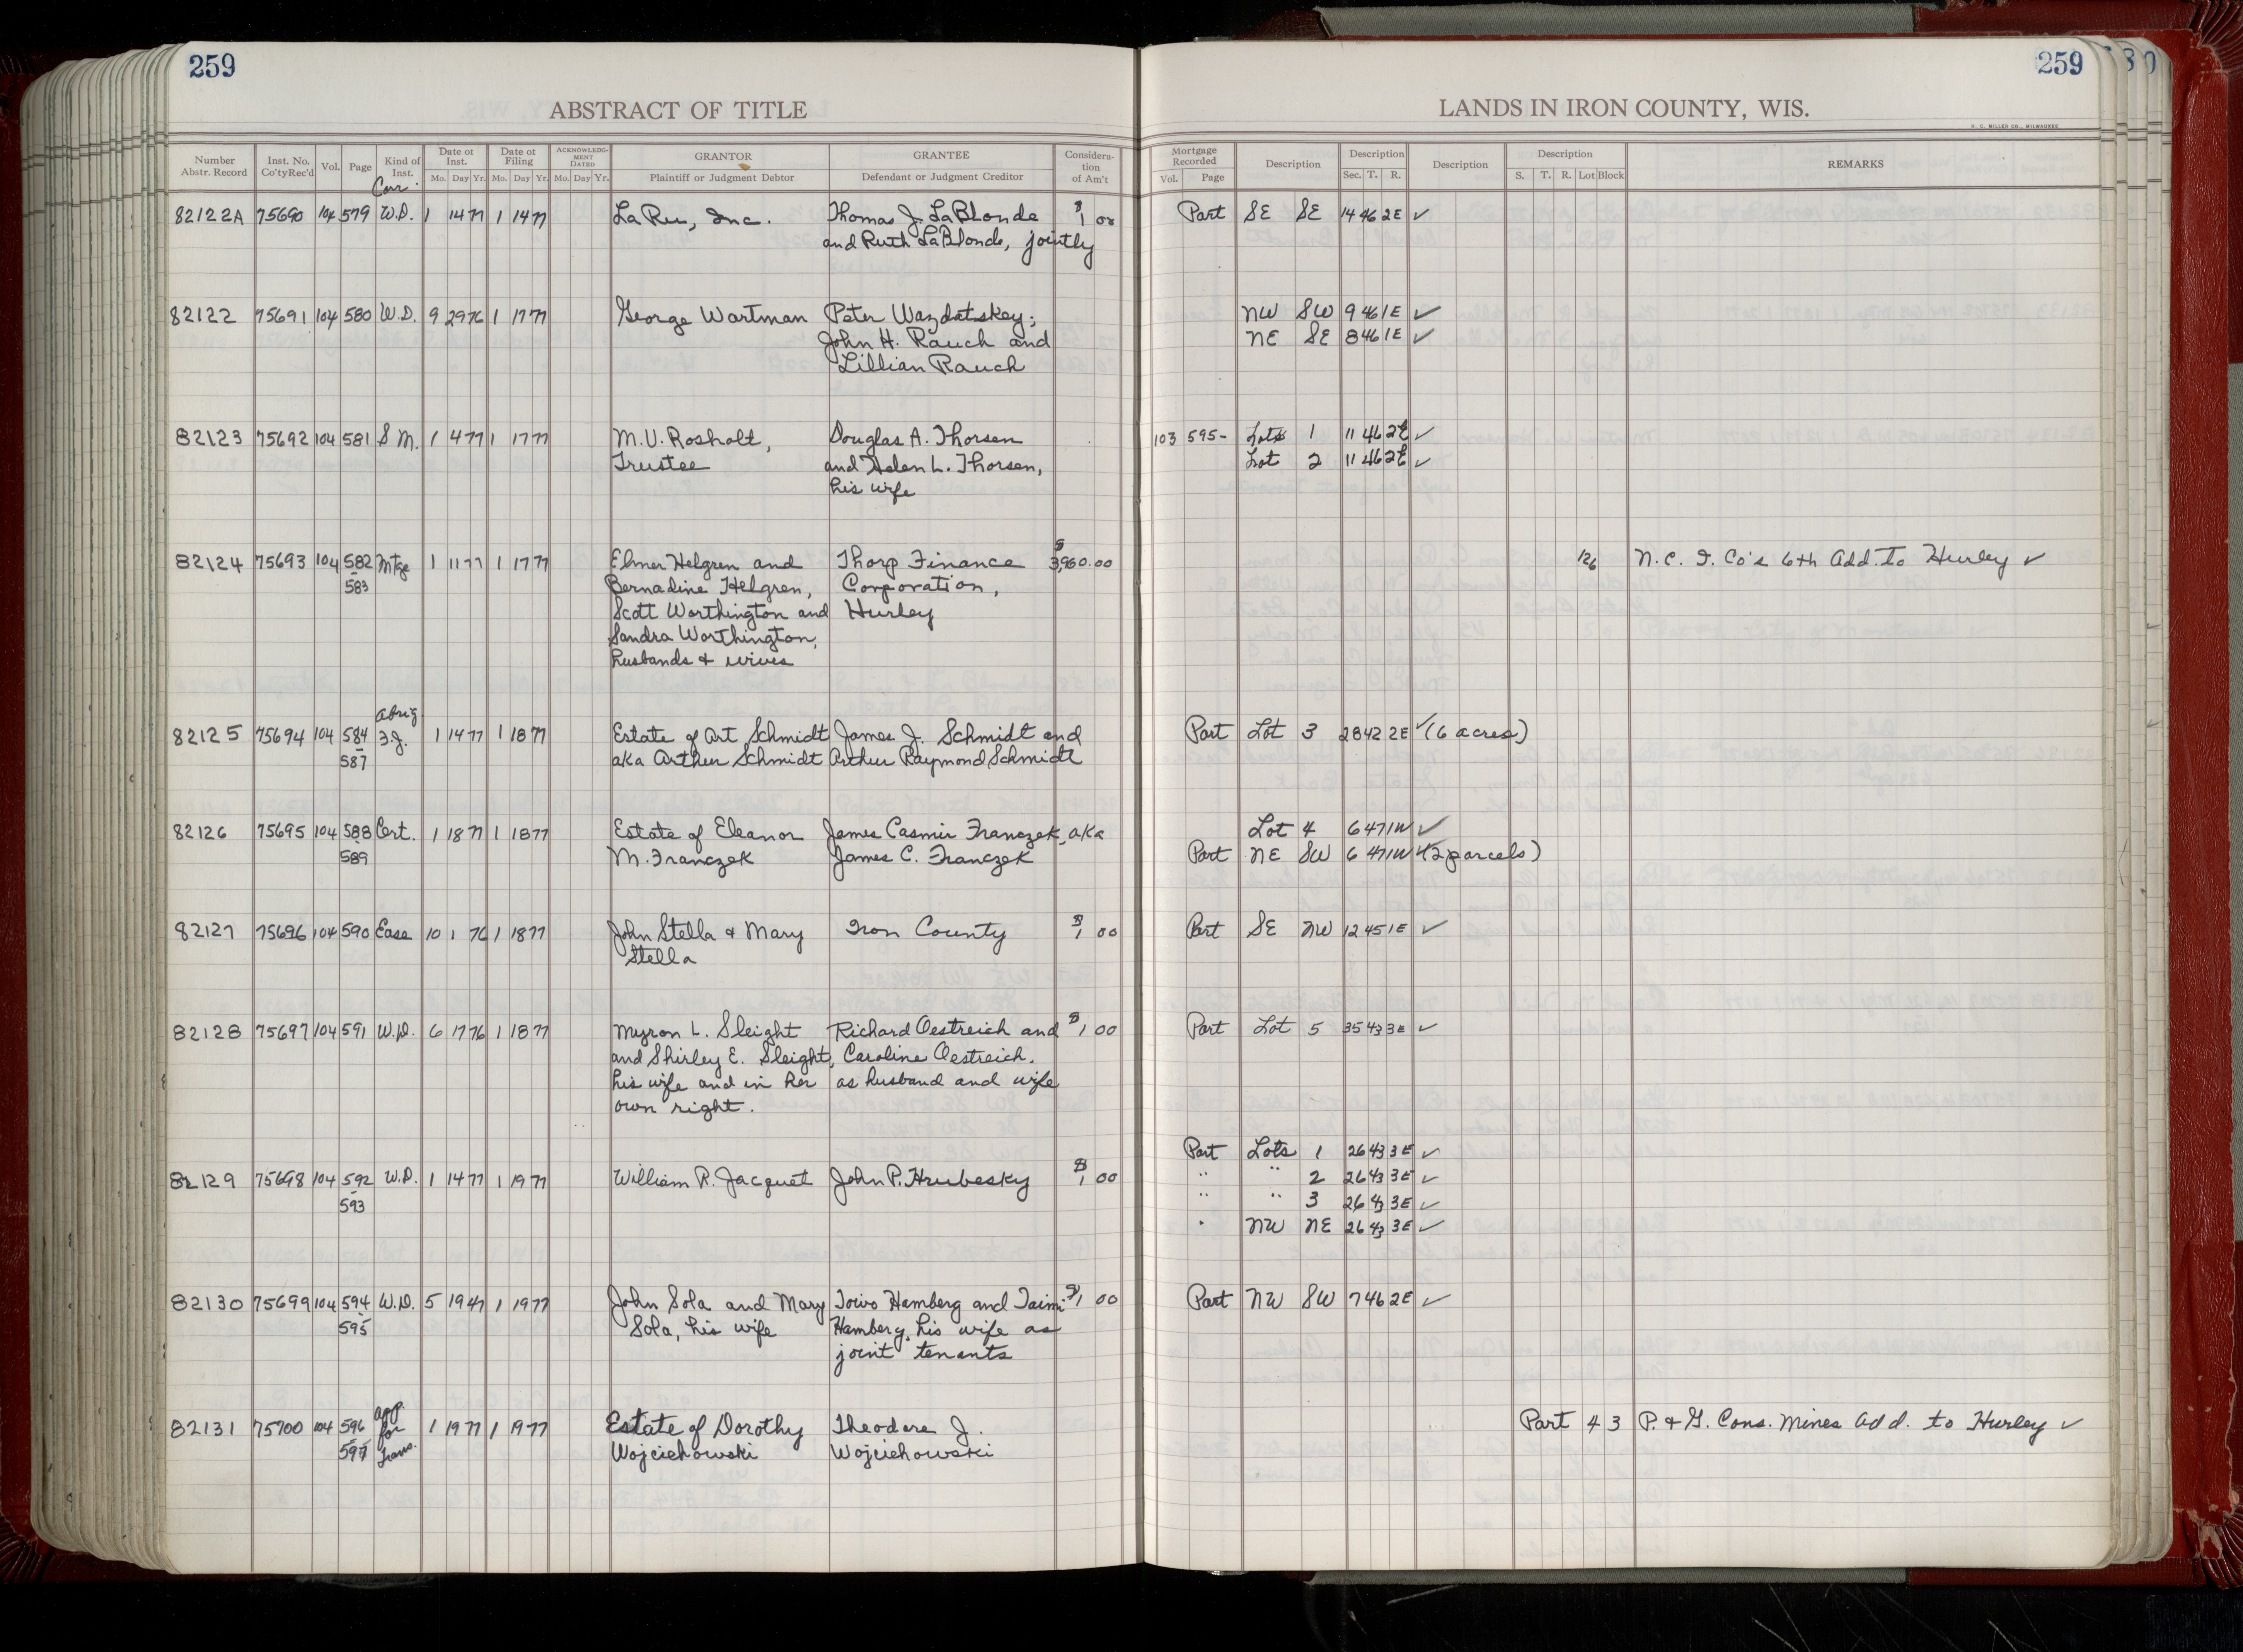 259
259
ABSTRACT OF TITLE
LANDS IN IRON COUNTY, WIS.
H. C. MILLER CO., MILWAUKEE
Number Abstr. Record | Inst. No. Co'ty Rec'd | Vol. | Page | Kind of Inst. | Date of Inst. Mo. Day Yr. | Date of Filing Mo. Day Yr. | ACKNOWLEDGMENT DATED Mo. Day Yr. | GRANTOR Plaintiff or Judgment Debtor | GRANTEE Defendant or Judgment Creditor | Consideration of Am't | Mortgage Recorded Vol. Page | Description | Description Sec. T. R. | Description | Description S. T. R. Lot Block | REMARKS
Corr.
82122A 75690 104 579 W.D. 1 14 77 1 14 77 LaRu, Inc. Thomas J. LaBlonde $1 00 Part SE SE 14 46 2E ✓
and Ruth LaBlonde, jointly
82122 75691 104 580 W.D. 9 29 76 1 17 77 George Wartman Peter Wazdatskey; NW SW 9 46 1E ✓
John H. Rauch and NE SE 8 46 1E ✓
Lillian Rauch
82123 75692 104 581 S M. 1 4 77 1 17 77 M.V. Rosholt, Douglas A. Thorsen 103 595- Lots 1 11 46 2E ✓
Trustee and Helen L. Thorsen, Lot 2 11 46 2E ✓
his wife
82124 75693 104 582 Mtge 1 11 77 1 17 77 Elmer Helgren and Thorp Finance $3,960.00 N.C. I. Co's 6th Add. To Hurley ✓
583 Bernadine Helgren, Corporation,
Scott Worthington and Hurley
Sandra Worthington,
husbands & wives
82125 75694 104 584 1 14 77 1 18 77 Estate of Art Schmidt James J. Schmidt and Part Lot 3 28 42 2E ✓ (6 acres)
587 aka Arthur Schmidt Arthur Raymond Schmidt
82126 75695 104 588 Cert. 1 18 77 1 18 77 Estate of Eleanor James Casmir Franczek, aka Lot 4 6 47 1W ✓
589 M. Franczek James C. Franczek Part NE SW 6 47 1W ✓ (2 parcels)
82127 75696 104 590 Ease 10 1 76 1 18 77 John Stella & Mary Iron County $1 00 Part SE NW 12 45 1E ✓
Stella
82128 75697 104 591 W.D. 6 17 76 1 18 77 Myron L. Sleight Richard Oestreich and $1 00 Part Lot 5 35 43 3E ✓
and Shirley E. Sleight, Caroline Oestreich,
his wife and in her as husband and wife
own right.
Part Lots 1 26 43 3E ✓
82129 75698 104 592 W.D. 1 14 77 1 19 77 William R. Jacquet John P. Hrubesky $1 00 " " 2 26 43 3E ✓
593 " " 3 26 43 3E ✓
" NW NE 26 43 3E ✓
82130 75699 104 594 W.D. 5 19 47 1 19 77 John Sola and Mary Toivo Hamberg and Taimi $1 00 Part NW SW 7 46 2E ✓
595 Sola, his wife Hamberg, his wife as
joint tenants
82131 75700 104 596 App. for Trans. 1 19 77 1 19 77 Estate of Dorothy Theodore J. Part 4 3 P. & G. Cons. Mines Add. to Hurley ✓
597 Wojciehowski Wojciehowski